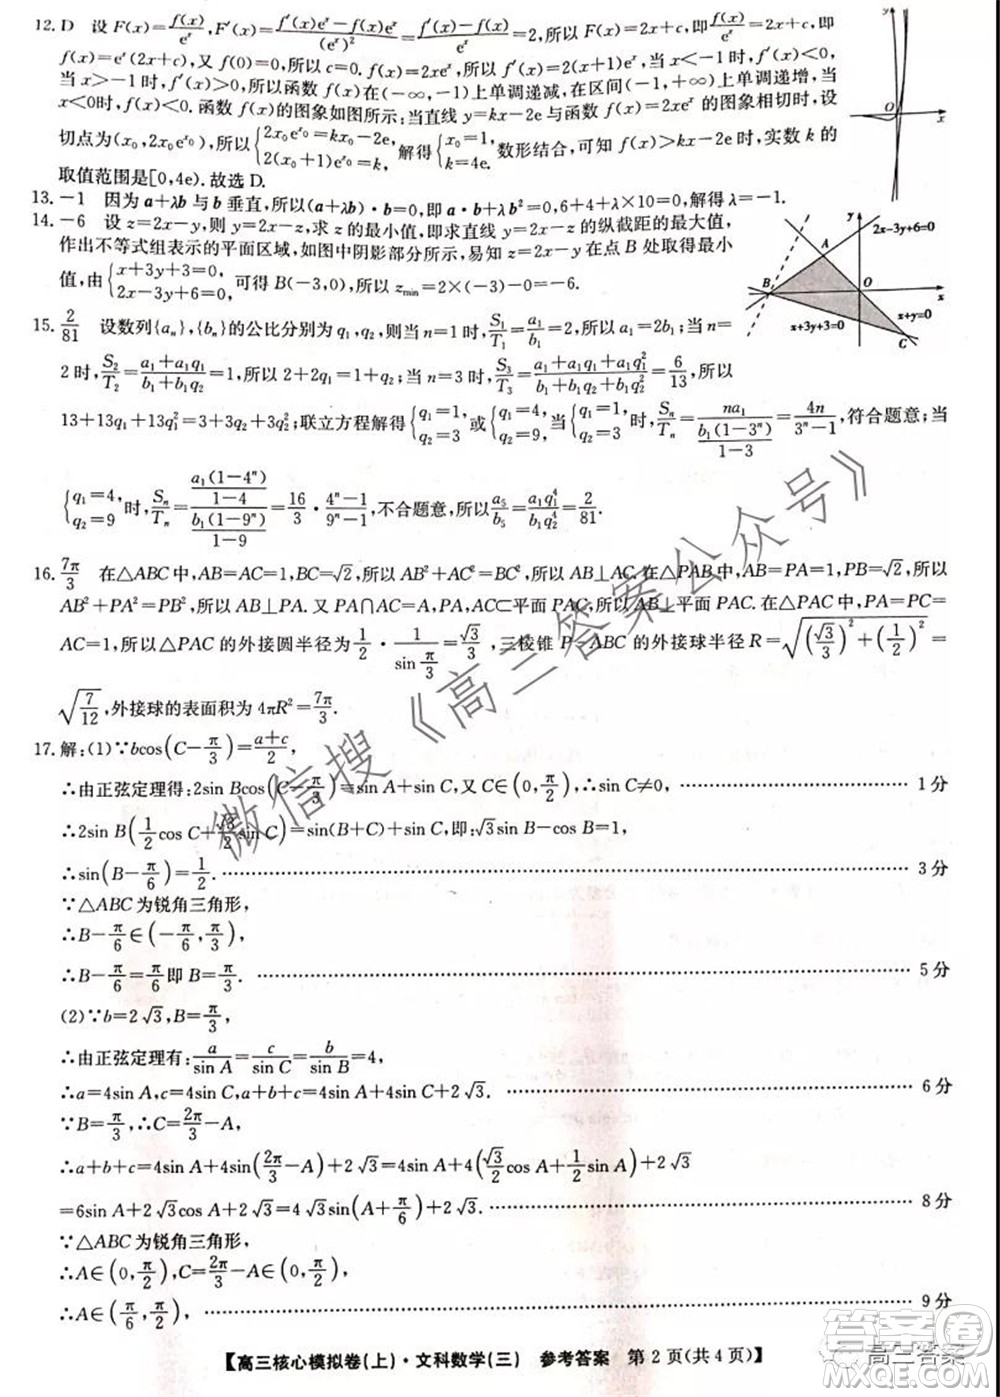 12. D 设 F(x)=f(x)/e^x, F′(x)=(f′(x)e^x−f(x)e^x)/(e^x)²=(f′(x)−f(x))/e^x=2,所以F(x)=2x+c,即f(x)/e^x=2x+c,即
f(x)=e^x(2x+c),又f(0)=0,所以c=0.f(x)=2xe^x,所以f′(x)=2(x+1)e^x,
当x>−1时,f′(x)>0,所以函数f(x)在(−∞,−1)上单调递减,在区间(−1,+∞)上单调递增,当
x<0时,f(x)<0.函数f(x)的图象如图所示;当直线y=kx−2e与函数f(x)=2xe^x的图象相切时,设
切点为(x₀,y₀),所以{2x₀e^x₀=kx₀−2e, 2(x₀+1)e^x₀=k, 解得{x₀=1, k=4e. 数形结合,可知f(x)>kx−2e恒成立时,实数k的
取值范围是[0,4e).故选D.
13. −1 因为a+λb与b垂直,所以(a+λb)·b=0,即a·b+λb²=0,6+4+λ×10=0,解得λ=−1.
14. −6 设z=2x−y,则y=2x−z,求z的最小值,即求直线y=2x−z的纵截距的最大值,
作出不等式组表示的平面区域,如图中阴影部分所示,易知z=2x−y在点B处取得最小
值,由{x+3y+3=0, 2x−3y+6=0, 可得B(−3,0),所以z_min=2×(−3)−0=−6.
15. 2/81 设数列{aₙ},{bₙ}的公比分别为q₁,q₂,则当n=1时,S₁/T₁=a₁/b₁=2,所以a₁=2b₁;当n=
2时,S₂/T₂=(a₁+a₁q₁)/(b₁+b₁q₂),所以2+2q₁=1+q₂;当n=3时,S₃/T₃=(a₁+a₁q₁+a₁q₁²)/(b₁+b₁q₂+b₁q₂²)=6/13,所以
13+13q₁+13q₁²=3+3q₂+3q₂²;联立方程解得{q₁=1, q₂=3 或{q₁=4, q₂=9. 当{q₁=1, q₂=3 时,Sₙ/Tₙ=na₁/(b₁(1−3ⁿ)/(1−3))=4n/(3ⁿ−1),符合题意;当
{q₁=4, q₂=9 时,Sₙ/Tₙ=(a₁(1−4ⁿ)/(1−4))/(b₁(1−9ⁿ)/(1−9))=16/3·(4ⁿ−1)/(9ⁿ−1),不合题意,所以a₅/b₅=a₁q₁⁴/b₁q₂⁴=2/81.
16. 7π/3 在△ABC中,AB=AC=1,BC=√2,所以AB²+AC²=BC²,所以AB⊥AC.在△PAB中,AB=PA=1,PB=√2,所以
AB²+PA²=PB²,所以AB⊥PA.又PA∩AC=A,PA,AC⊂平面PAC,所以AB⊥平面PAC.在△PAC中,PA=PC=
AC=1,所以△PAC的外接圆半径为1/2·1/sin π/3=√3/3,三棱锥P−ABC的外接球半径R=√((√3/3)²+(1/2)²)=
√(7/12),外接球的表面积为4πR²=7π/3.
17. 解:(1)∵bcos(C−π/3)=(a+c)/2,
∴由正弦定理得:2sin Bcos(C−π/3)=sin A+sin C,又C∈(0,π/2),∴sin C≠0,………1分
∴2sin B(1/2cos C+√3/2sin C)=sin(B+C)+sin C,即:√3sin B−cos B=1,
∴sin(B−π/6)=1/2.………3分
∵△ABC为锐角三角形,
∴B−π/6∈(−π/6,π/3),
∴B−π/6=π/6即B=π/3.………5分
(2)∵b=2√3,B=π/3,
∴由正弦定理有:a/sin A=c/sin C=b/sin B=4,
∴a=4sin A,c=4sin C,∴a+b+c=4sin A+4sin C+2√3………6分
∵B=π/3,∴C=2π/3−A,
∴a+b+c=4sin A+4sin(2π/3−A)+2√3=4sin A+4(√3/2cos A+1/2sin A)+2√3
=6sin A+2√3cos A+2√3=4√3sin(A+π/6)+2√3.………8分
∵△ABC为锐角三角形,
∴A∈(0,π/2),C=2π/3−A∈(0,π/2),
∴A∈(π/6,π/2),………9分
【高三核心模拟卷(上)·文科数学(三) 参考答案 第2页(共4页)】
O
x
y
2x−3y+6=0
A
B
O
x
x+3y+3=0
x+y=0
C
微信搜《高三答案公众号》
答案圈
高三答案